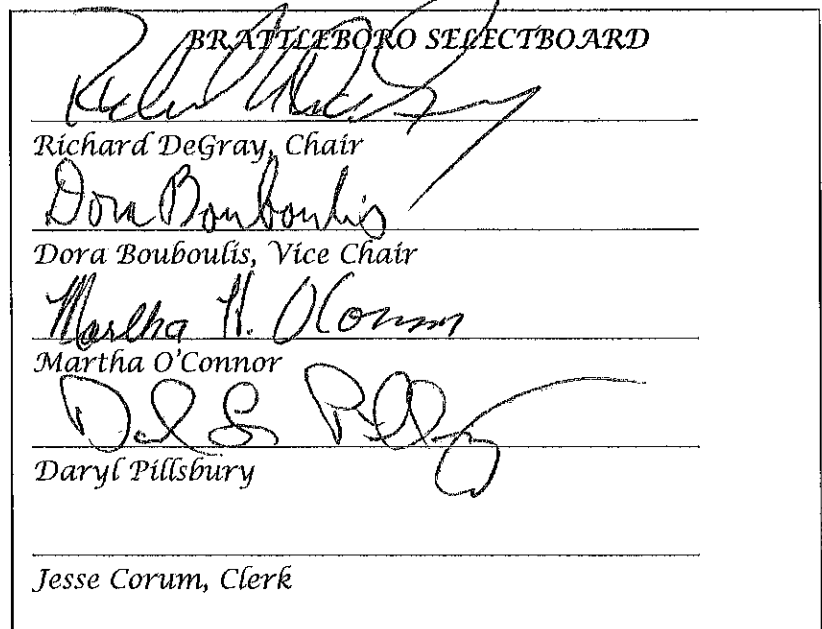 BRATTLEBORO SELECTBOARD
Richard DeGray, Chair
Dora Bouboulis
Dora Bouboulis, Vice Chair
Martha H. O'Connor
Martha O'Connor
Daryl Pillsbury
Jesse Corum, Clerk